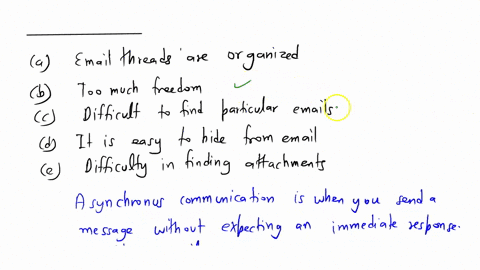 (a) Email threads are organized
(b) Too much freedom
(c) Difficult to find particular emails.
(d) It is easy to hide from email
(e) Difficulty in finding attachments
Asynchronus communication is when you send a
message without expecting an immediate response.